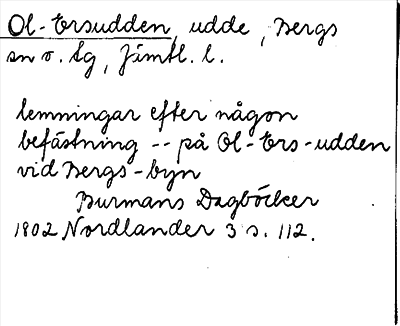 Ol-Ersudden, udde, Bergs
sn o. tg, Jämtl. l.
lemningar efter någon
befästning -- på Ol-Ers-udden
vid Bergs-byn
Burmans Dagböcker
1802 Nordlander 3 s. 112.